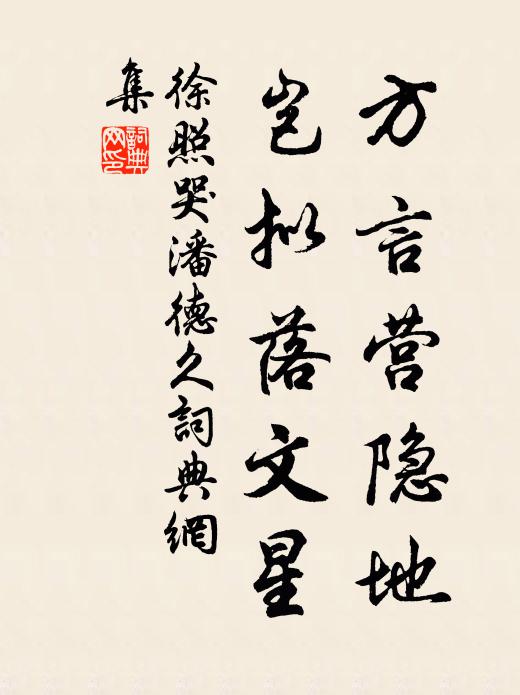 方言营隐地
岂拟落文星
徐照哭潘德久詞典網
集
詞典網印